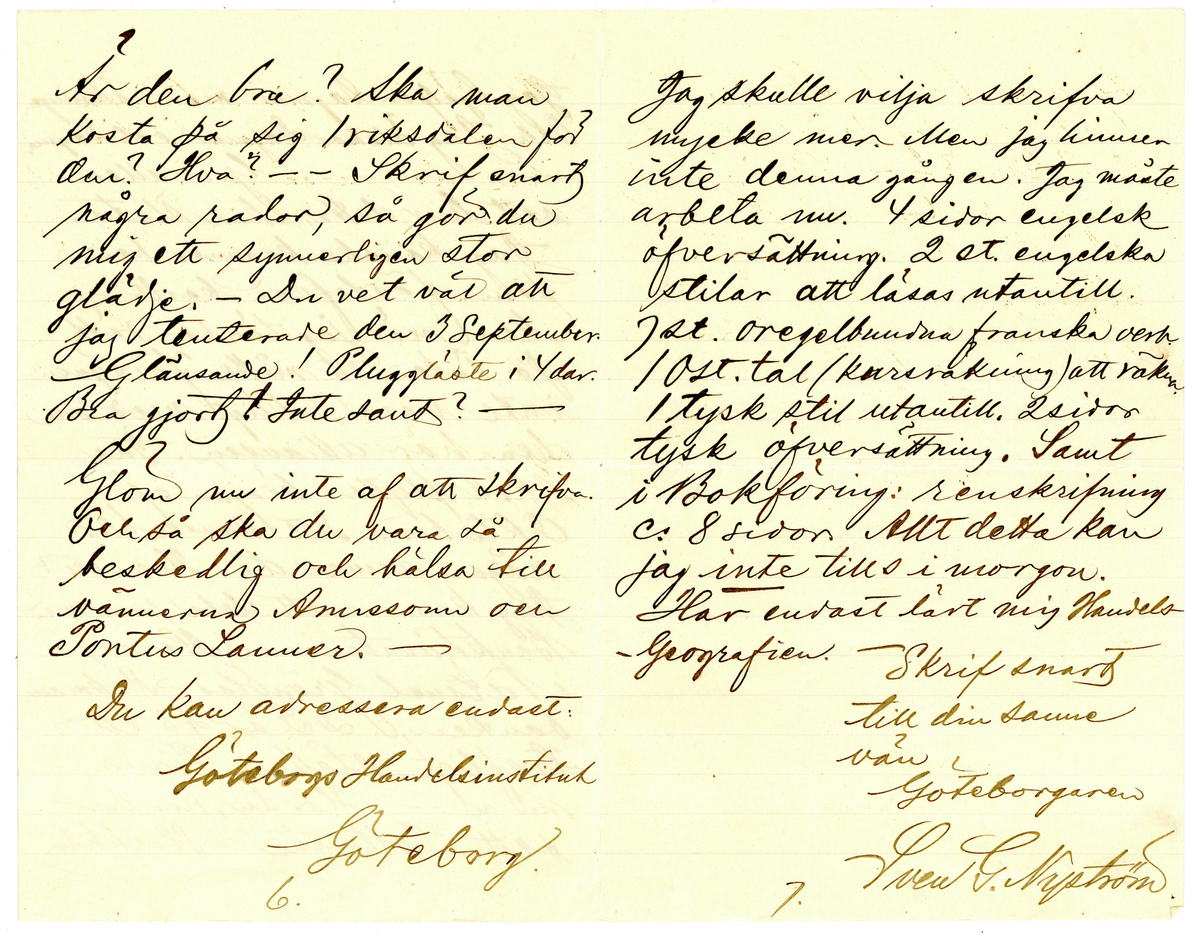 Är den bra? Ska man
kosta på sig 1 riksdaler för
den? Hva? – – Skrif snart
några rador, så gör du
mig ett synnerligen stor
glädje. – Du vet väl att
jag tenterade den 3 September.
Glänsande! Pluggläste i 4 dar.
Bra gjort! Inte sant? —
Glöm nu inte af att skrifva.
Och så ska du vara så
beskedlig och hälsa till
vännerna Arnesson och
Pontus Lanner. —
Du kan adressera endast:
Göteborgs Handelsinstitut
Göteborg.
6.
Jag skulle vilja skrifva
mycke mer. Men jag hinner
inte denna gången. Jag måste
arbeta nu. 4 sidor engelsk
öfversättning. 2 st. engelska
stilar att läsas utantill.
7 st. oregelbundna franska verb.
10 st. tal (kursräkning) att räkna.
1 tysk stil utantill. 2 sidor
tysk öfversättning. Samt
i Bokföring: renskrifning
c: 8 sidor. Allt detta kan
jag inte tills i morgon.
Har endast lärt mig Handels-
-Geografien. — Skrif snart
till din sanne
vän
Göteborgaren
Sven G. Nyström.
7.